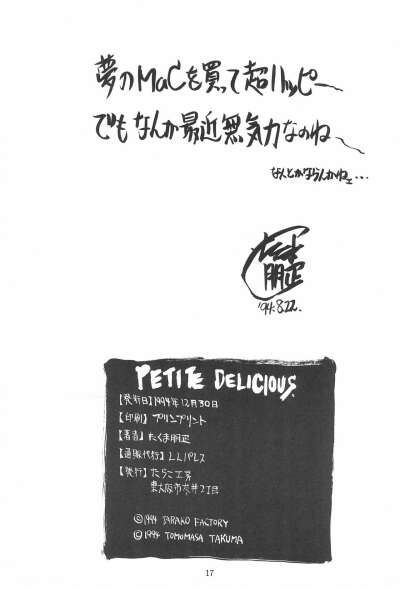 夢のMacを買って超ハッピー〜
でもなんか最近無気力なのね〜
なんとかならんかねェ...
たくま
朋正
'94.8.22.
PETITE DELICIOUS.
【発行日】1994年12月30日
【印刷】プリンプリント
【著者】たくま朋正
【通販代行】LLパレス
【発行】たらこ工房
東大阪市 2丁目
©1994 TARAKO FACTORY
©1994 TOMOMASA TAKUMA
17